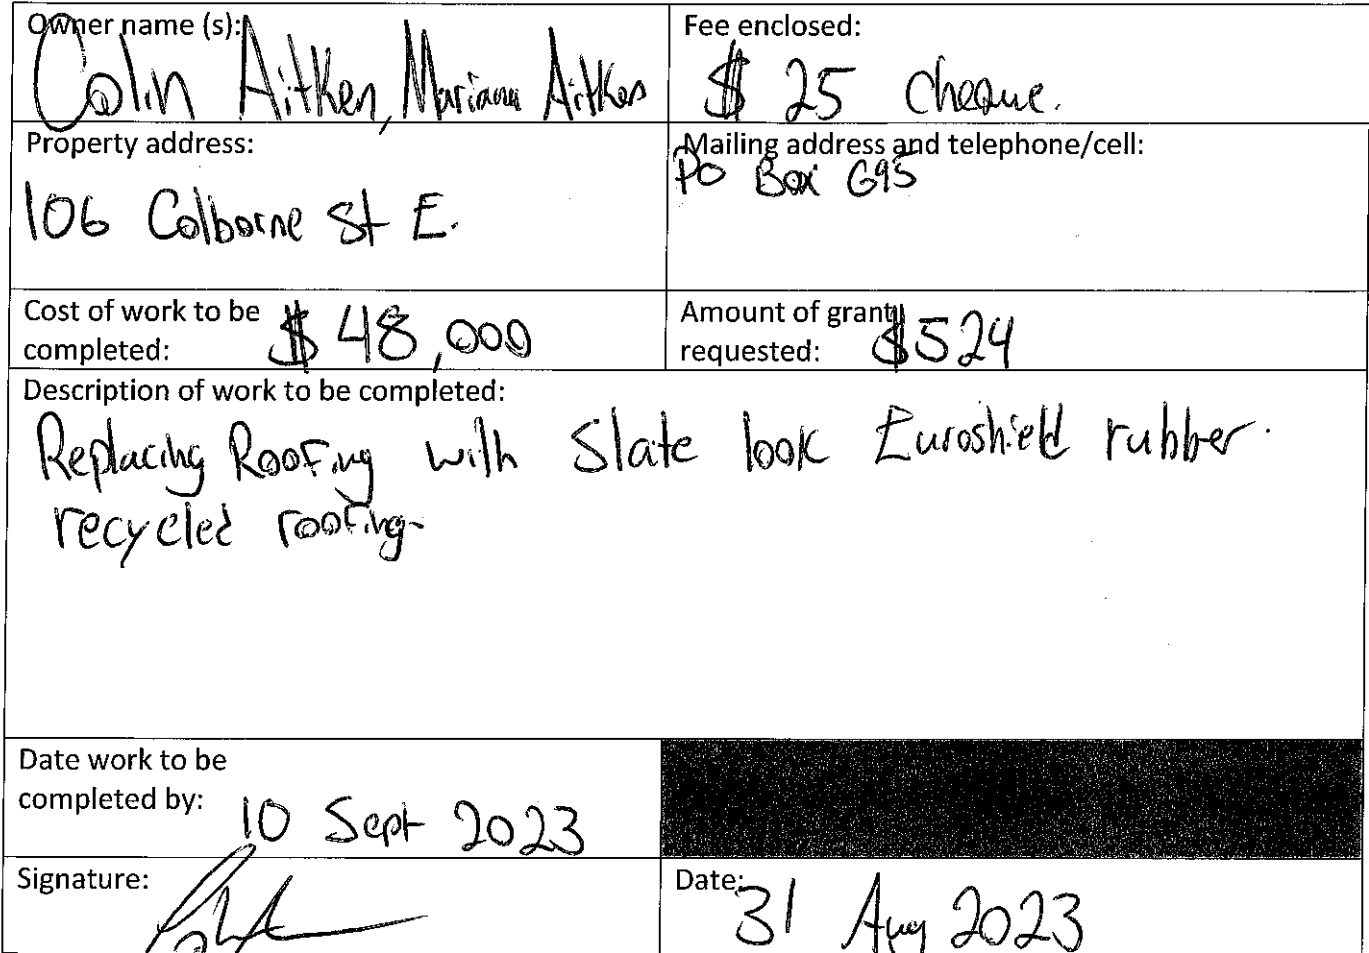 Owner name (s):
Colin Aitken, Mariana Aitken
Fee enclosed:
$ 25 Cheque.
Property address:
106 Colborne St E.
Mailing address and telephone/cell:
PO Box 695
Cost of work to be
completed: $ 48,000
Amount of grant
requested: $524
Description of work to be completed:
Replacing Roofing with Slate look Euroshield rubber.
recycled roofing.
Date work to be
completed by: 10 Sept 2023
Signature:
Date: 31 Aug 2023